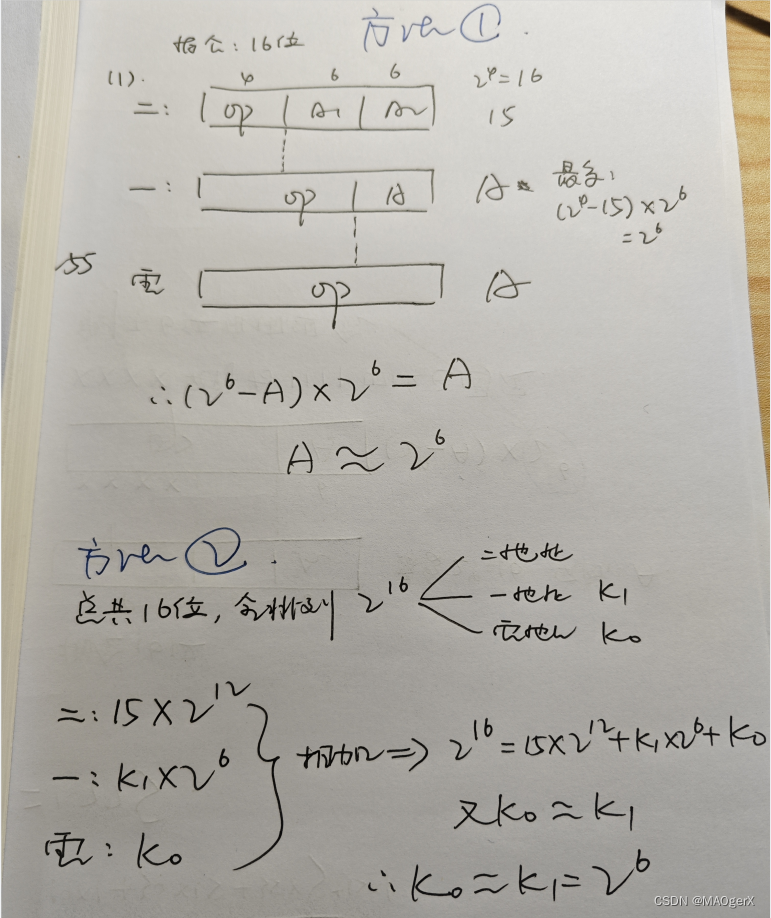 指令:16位 方法①.
(1).
4 6 6 2⁴=16
二: op A₁ A₂ 15
一: op A A 最多:
(2⁴-15)×2⁶
=2⁶
零 op A
∴(2⁶-A)×2⁶=A
A≈2⁶
方法②.
总共16位,全排列 2¹⁶
二地址
一地址 K₁
零地址 K₀
二:15×2¹²
一:K₁×2⁶
零:K₀
相加⇒ 2¹⁶=15×2¹²+K₁×2⁶+K₀
又K₀≈K₁
∴K₀≈K₁=2⁶
CSDN @MAOgerX